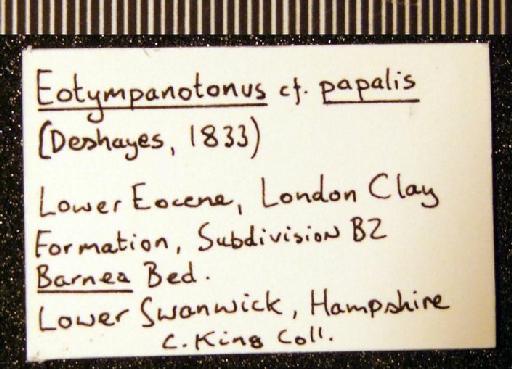 Eotympanotonus cf. papalis
(Deshayes, 1833)
Lower Eocene, London Clay
Formation, Subdivision B2
Barnea Bed.
Lower Swanwick, Hampshire
C. King Coll.